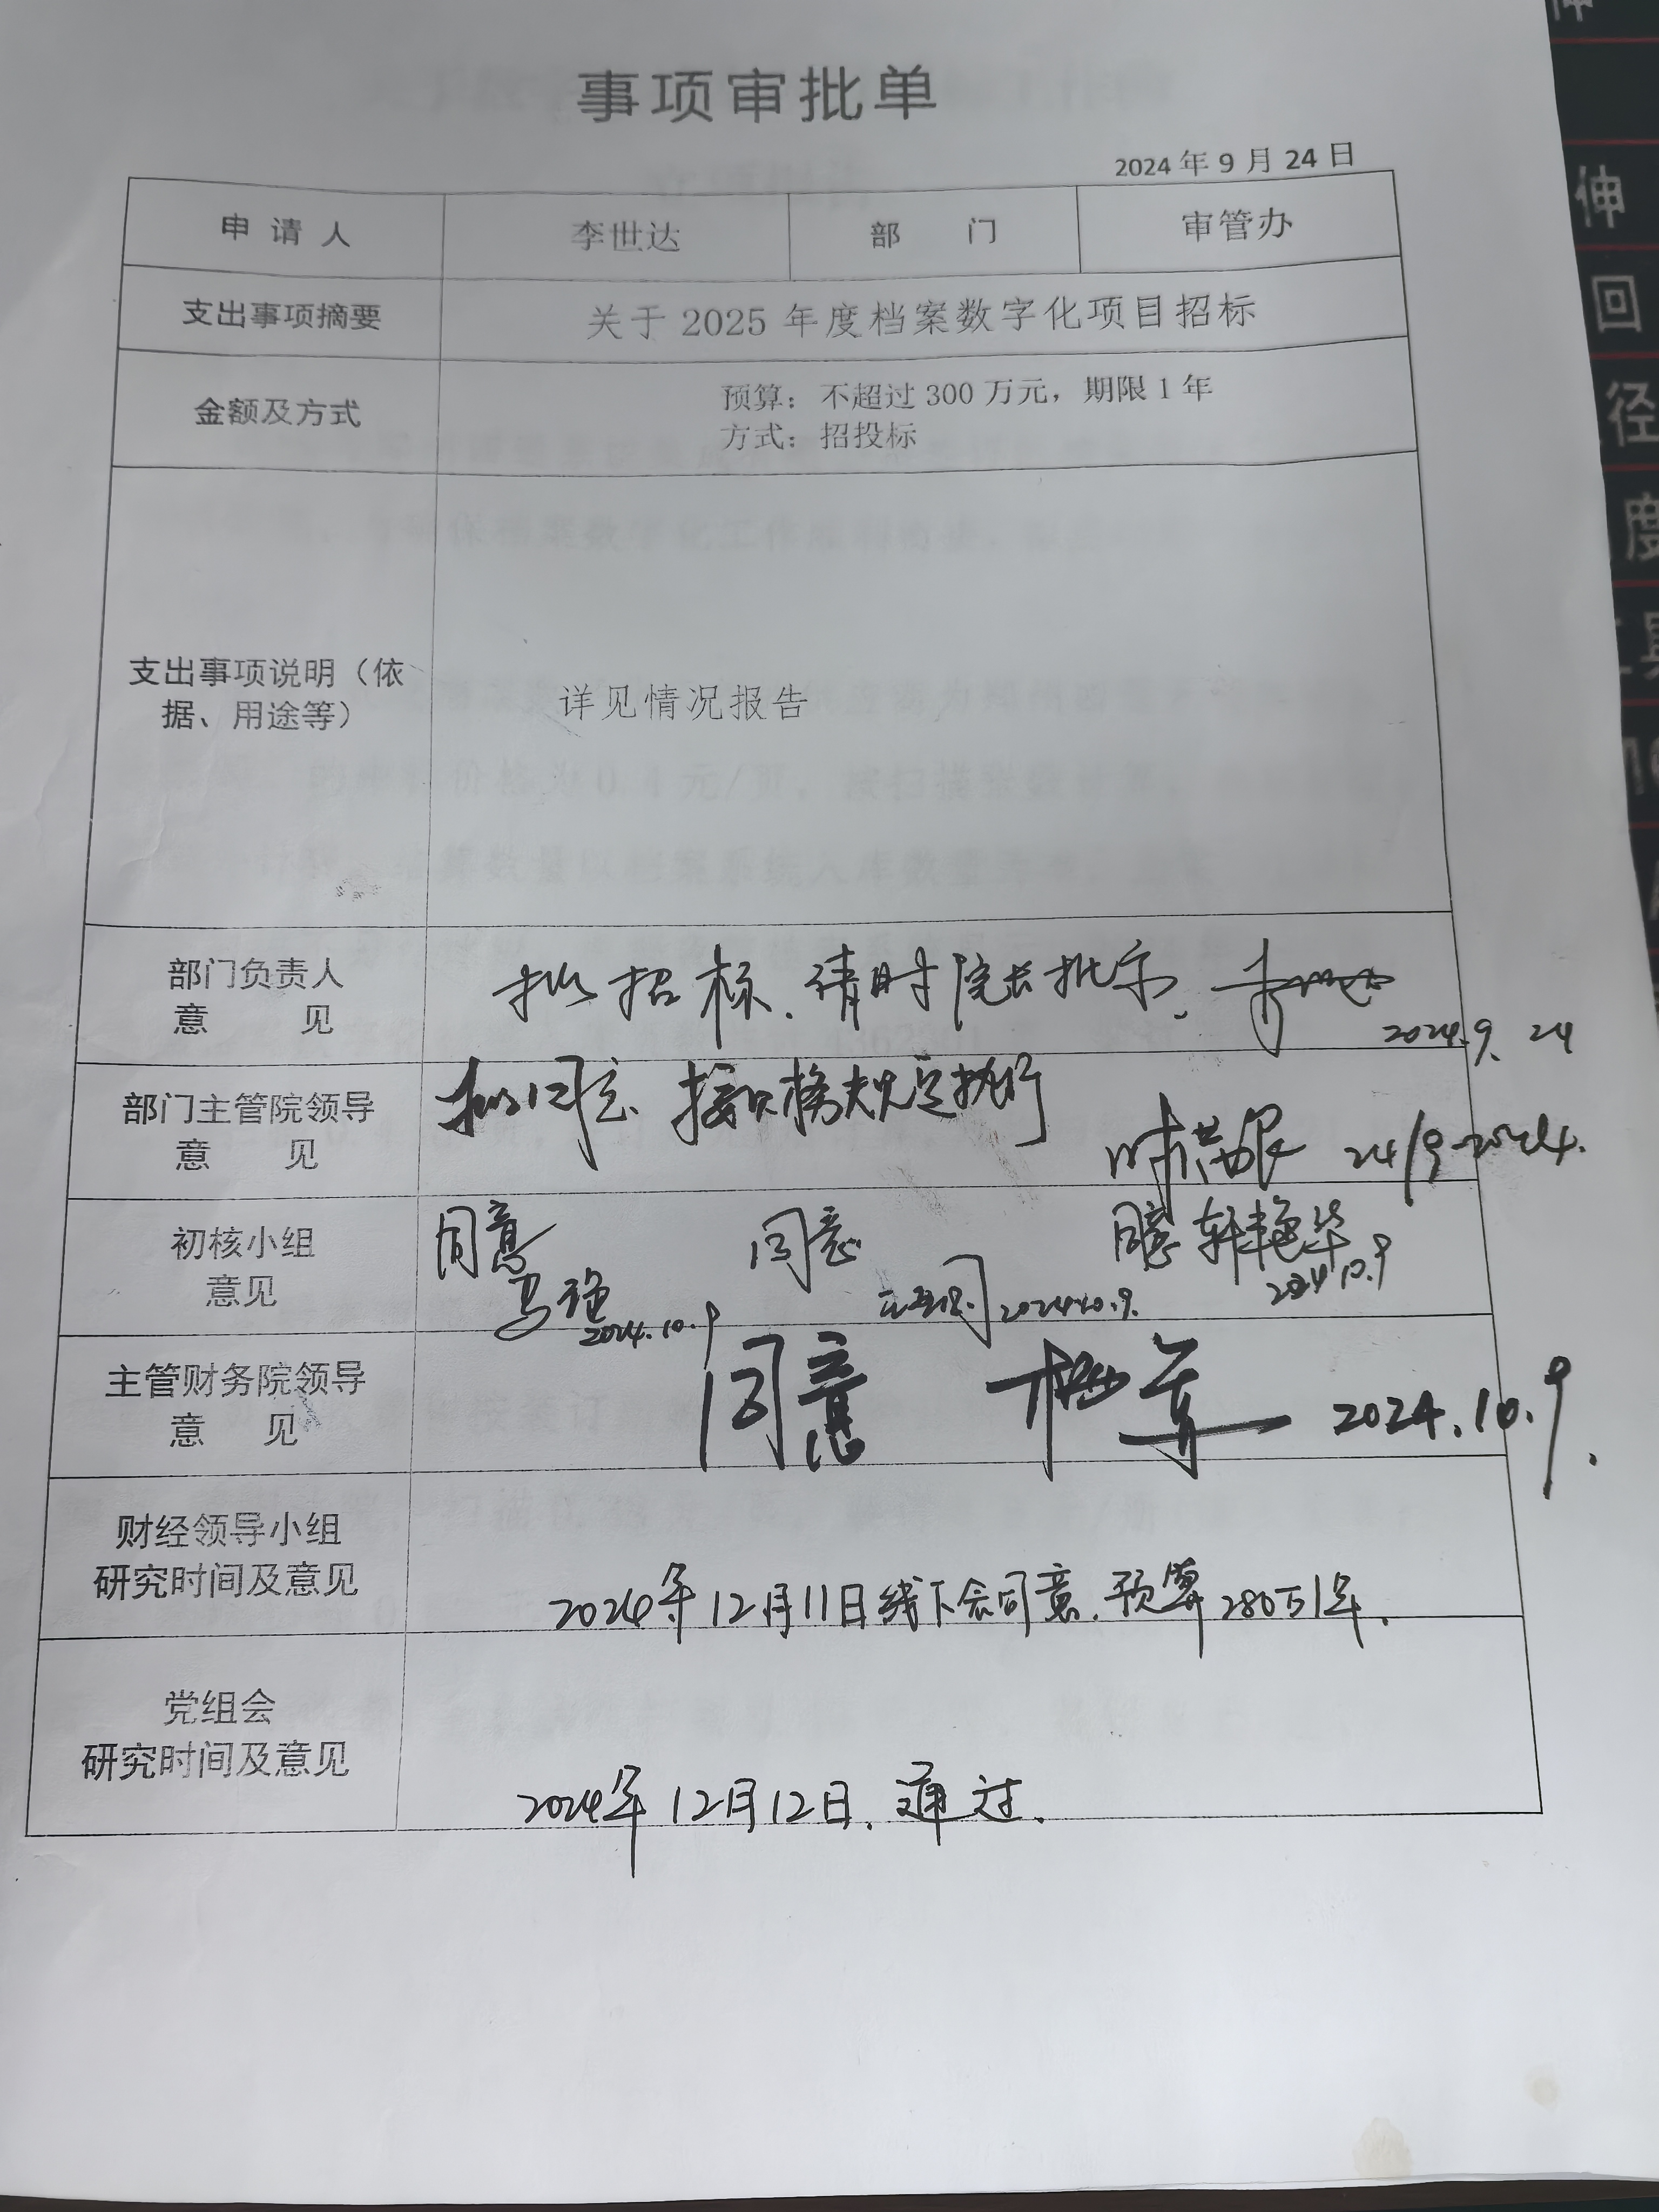 事项审批单
2024年9月24日
申请人 李世达 部门 审管办
支出事项摘要 关于2025年度档案数字化项目招标
金额及方式
预算：不超过300万元，期限1年
方式：招投标
支出事项说明（依
据、用途等）
详见情况报告
部门负责人
意见
拟招标.请时院长批示.
2024.9.24
部门主管院领导
意见
拟同意.按规定执行
24/9-2024.
初核小组
意见
同意 同意 同意
2024.10.9 2024.10.9. 2024.10.9
主管财务院领导
意见
同意 2024.10.9.
财经领导小组
研究时间及意见
2024年12月11日线下会同意.预算280万1年.
党组会
研究时间及意见
2024年12月12日.通过.
伸
回
径
度